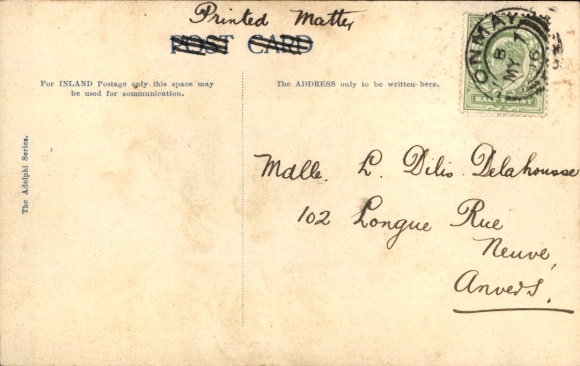 Printed Matter
POST CARD
For INLAND Postage only this space may
be used for communication.
The ADDRESS only to be written here.
The Adelphi Series.
HALFPENNY
Mdlle. L. Dilis Delahousse
102 Longue Rue
Neuve,
Anvers.